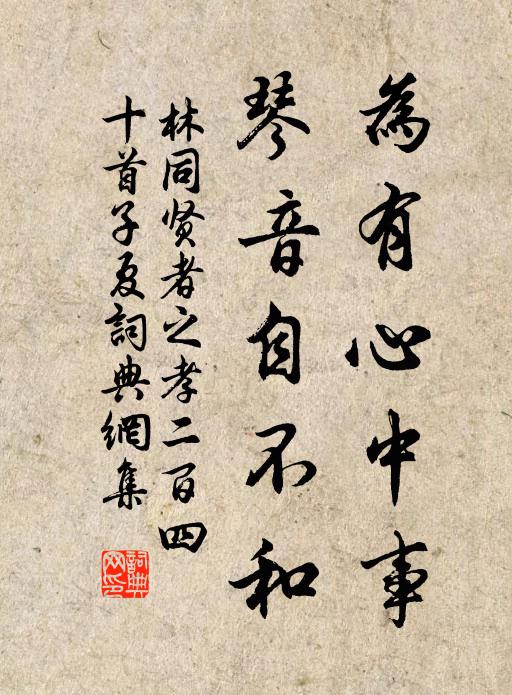 為有心中事
琴音自不和
林同贤者之孝二百四
十首子夏詞典網集
詞典网印